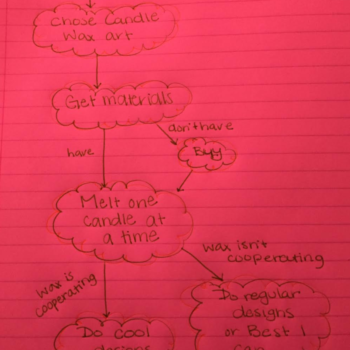 Chose Candle
Wax art
Get materials
don't have
have
Buy
Melt one
candle at
a time
wax isn't
cooperating
wax is
cooperating
Do regular
designs
or Best I
can
Do cool
designs